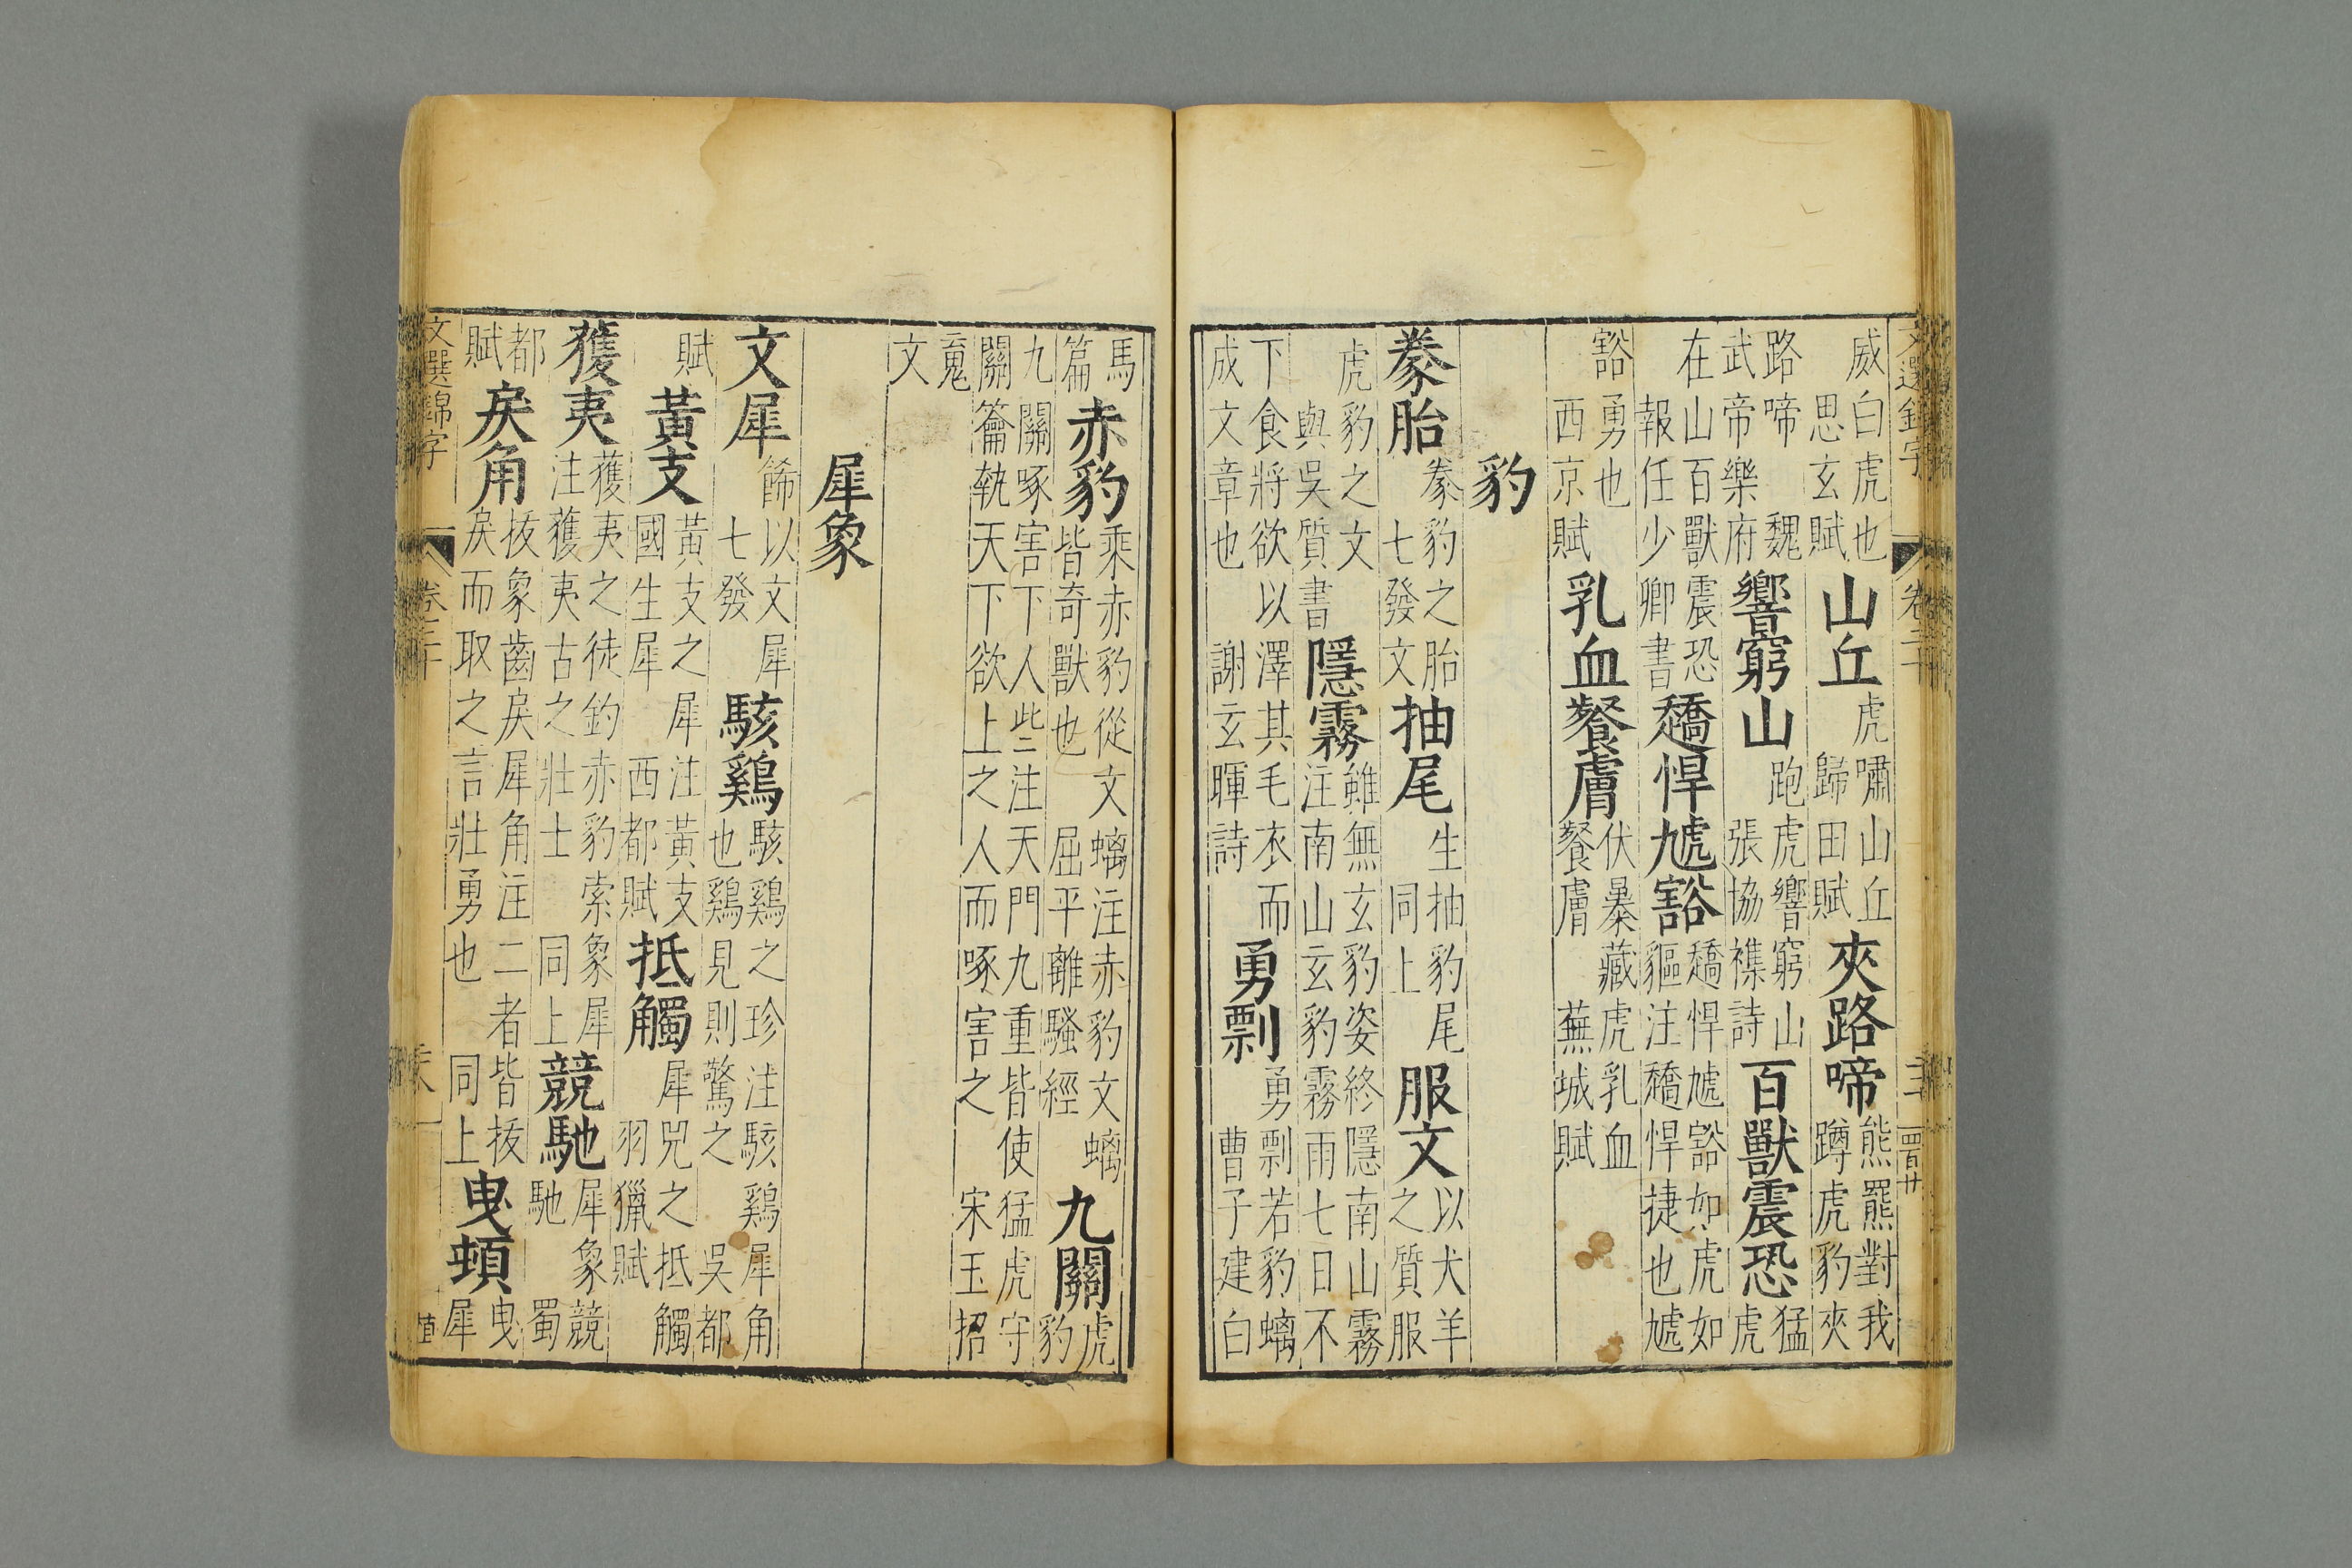 文選錦字 卷二十
威白虎也思玄賦山丘虎嘯山丘歸田賦夾路啼熊羆對我蹲虎豹夾
路啼魏武帝樂府響窮山跑虎響窮山張協襍詩百獸震恐猛虎
在山百獸震恐報任少卿書趫悍虓豁趫悍虓豁如虎如貙注趫悍捷也虓
豁勇也西京賦乳血餐膚伏暴藏虎乳血餐膚蕪城賦
豹
豢胎豢豹之胎七發文抽尾生抽豹尾同上服文以犬羊之質服
虎豹之文與吳質書隱霧雖無玄豹姿終隱南山霧注南山玄豹霧雨七日不
下食將欲以澤其毛衣而成文章也謝玄暉詩勇剽勇剽若豹螭曹子建白
馬篇赤豹乘赤豹從文螭注赤豹文螭皆奇獸也屈平離騷經九關虎豹
九關啄害下人些注天門九重皆使猛虎守關籥執天下欲上之人而啄害之宋玉招
䰟文
犀象
文犀餙以文犀七發駭鷄駭鷄之珍注駭鷄犀角也鷄見則驚之吳都
賦黃支黃支之犀注黃支國生犀西都賦抵觸犀兕之抵觸羽獵賦
獲夷獲夷之徒釣赤豹索象犀注獲夷古之壯士同上競馳犀象競馳蜀
都賦戾角拔象齒戾犀角注二者皆拔戾而取之言壯勇也同上曳頓曳犀
文選錦字 卷二十